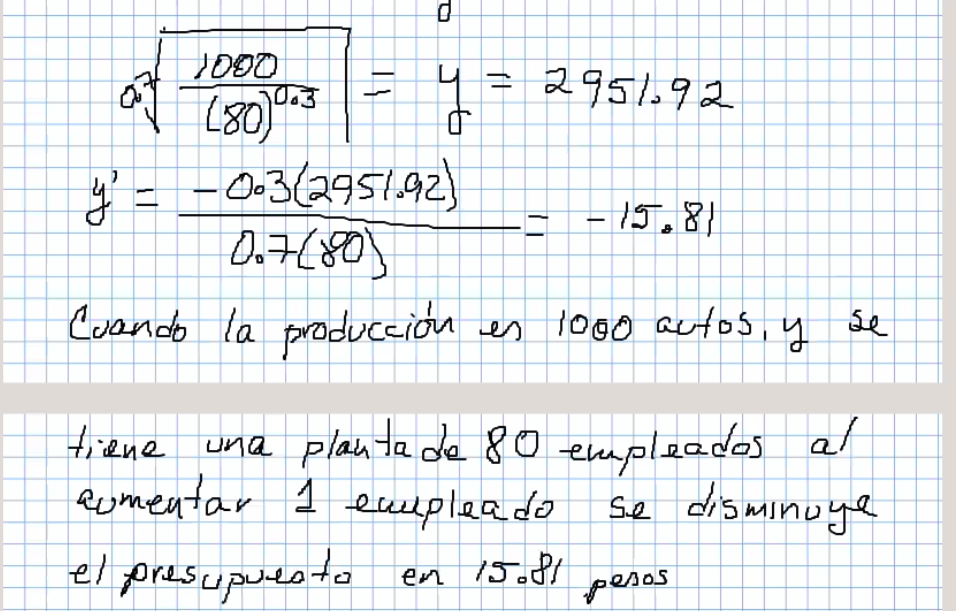 d
0.7√(1000/(80)^0.3) = y = 2951.92
y' = -0.3(2951.92)/0.7(80) = -15.81
Cuando la producción es 1000 autos, y se
tiene una planta de 80 empleados al
aumentar 1 empleado se disminuye
el presupuesto en 15.81 pesos